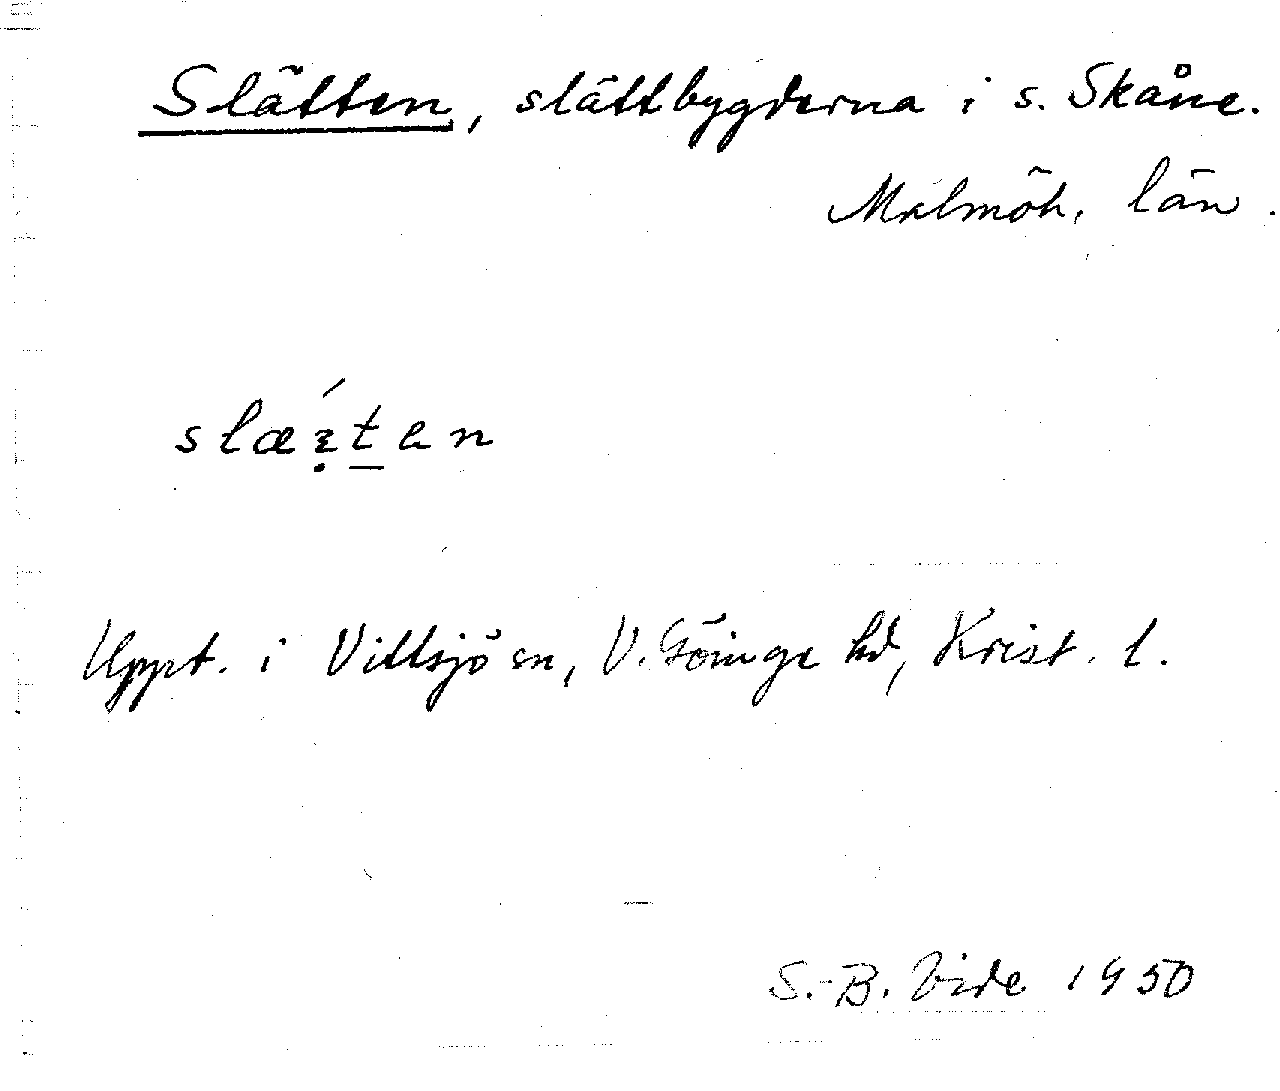 Slätten, slättbygderna i s. Skåne.
Malmöh. län.
Uppt. i Vittsjö sn, V. Göinge hd, Krist. l.
S.-B. Vide 1950